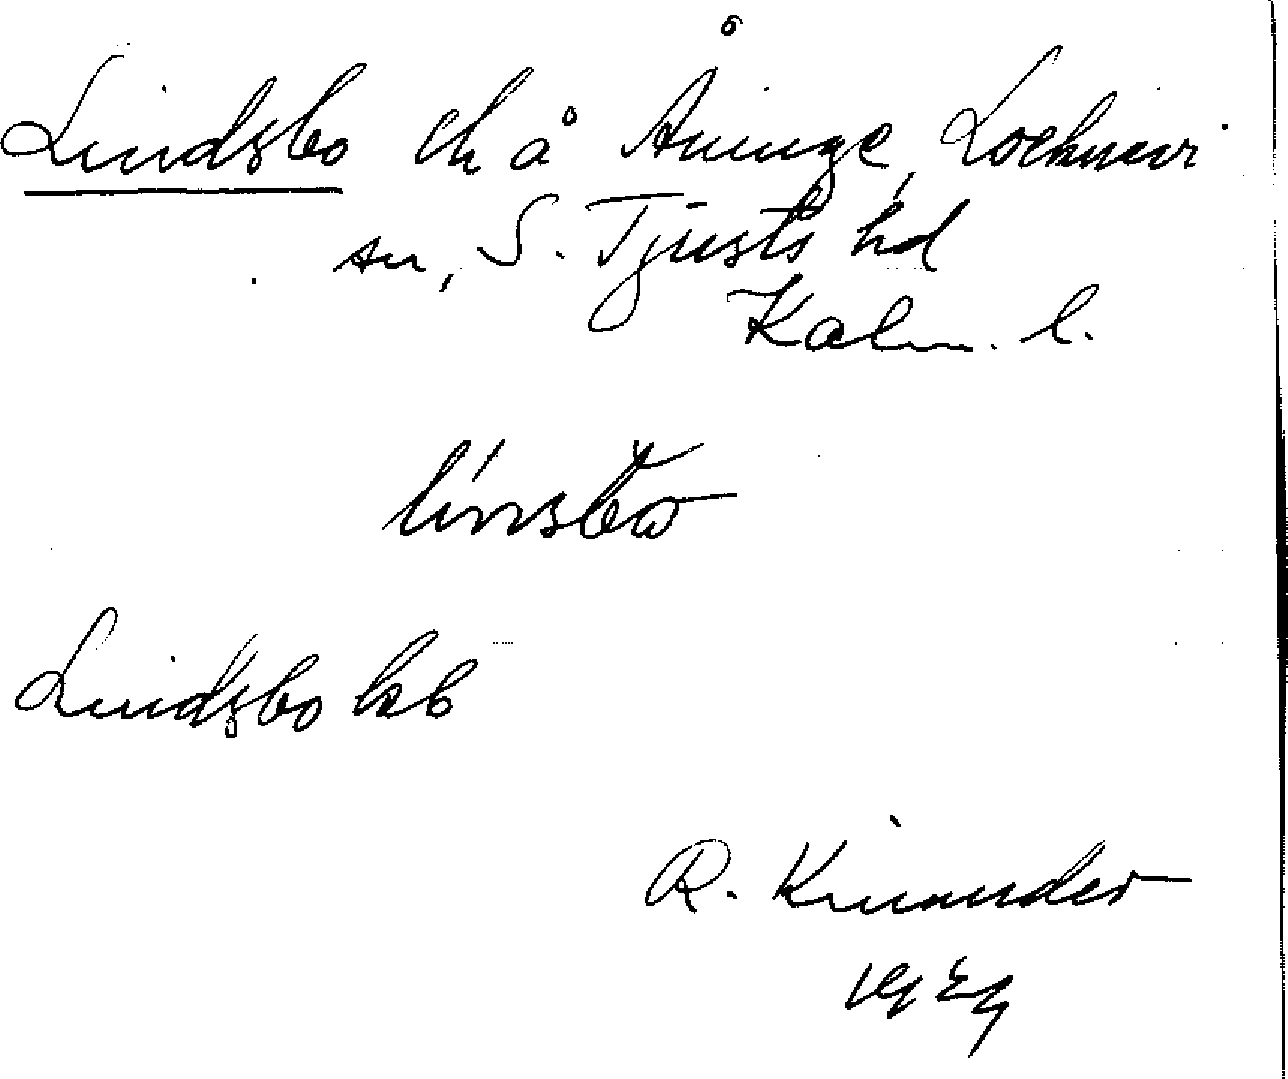 Lindsbo lh å Åninge, Locknevi
sn, S. Tjusts hd
Kalm. l.
linsbo
Lindsbo kb
R. Kinander
1929